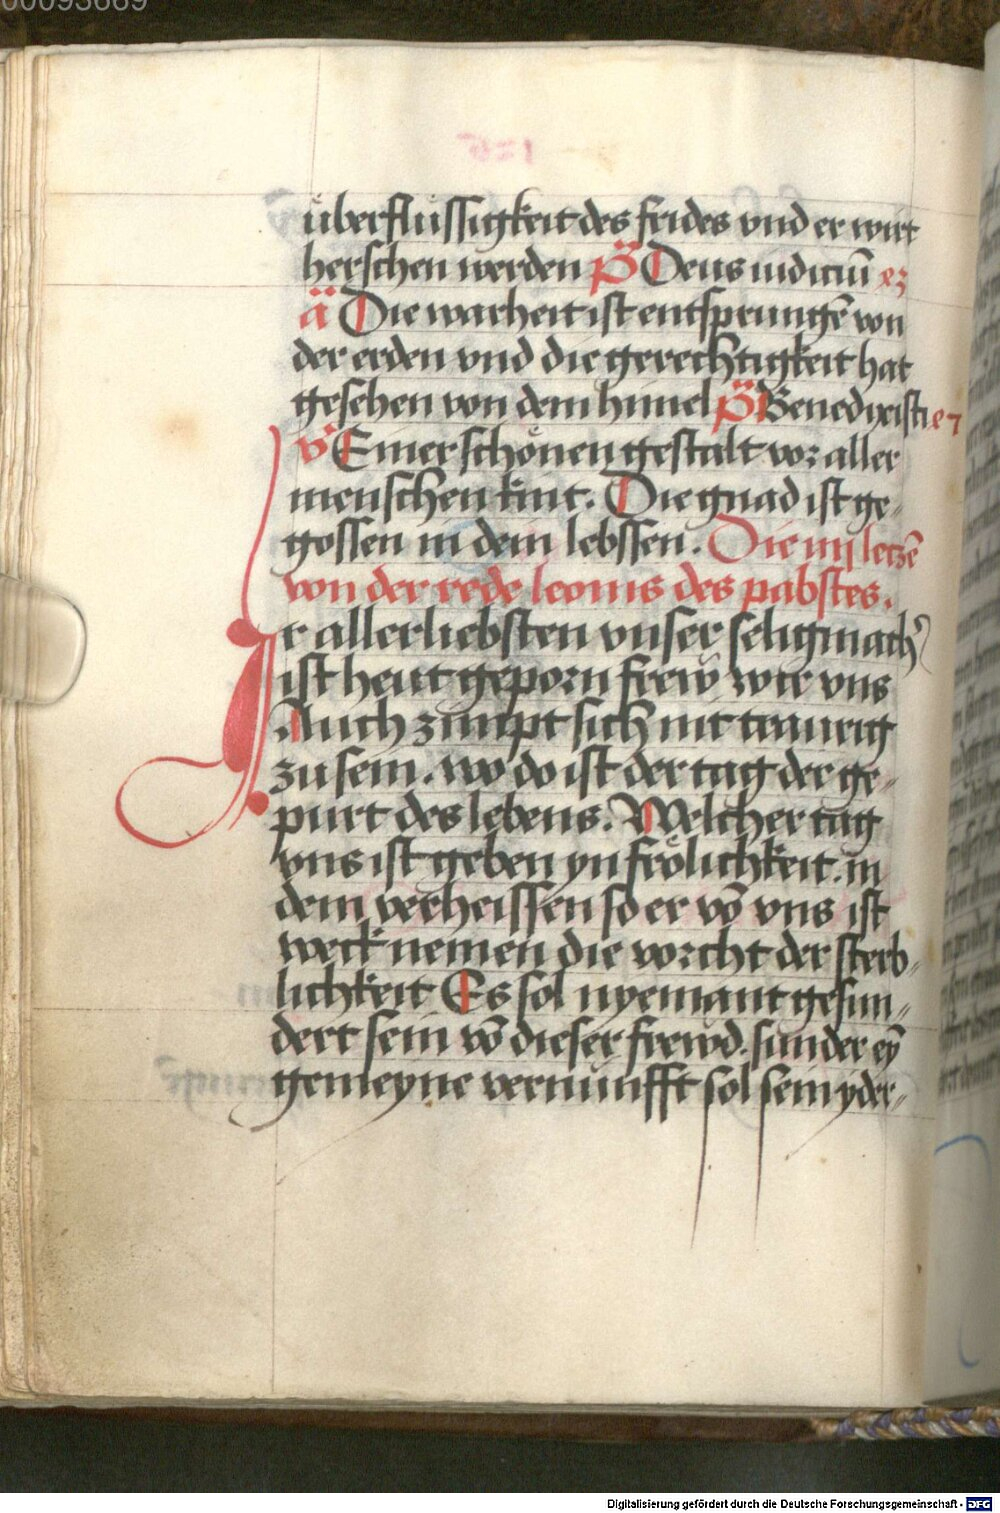 00093669
überflüssigkeit des frides vnd er wirt
herschen werden p̈s Deus iudiciū ꝛc
ä Die warheit ist entsprungē von
der erden vnd die gerechtigkeit hat
gesehen von dem himel p̈s Benedixisti ꝛc
v̈ Einer schönen gestalt vor aller
menschen kint. Die gnad ist ge,
gossen in dein lebssen. Die iiij letzē
von der rede leonis des pabstes.
Ir allerliebsten vnser seligmachꝰ
ist heut geporn frew wir vns
Auch zimpt sich nit traurig
zu sein. wo do ist der tag der ge„
purt des lebens. Welcher tag
vns ist geben yn frölichkeit. in
dem verheissen so er vō vns ist
weck nemen die vorcht der sterb„
lichkeit Es sol nyemant gesun„
dert sein vō dieser frewd. sunder eȳ
gemeyne vernünfft sol sein yder„
Digitalisierung gefördert durch die Deutsche Forschungsgemeinschaft - DFG